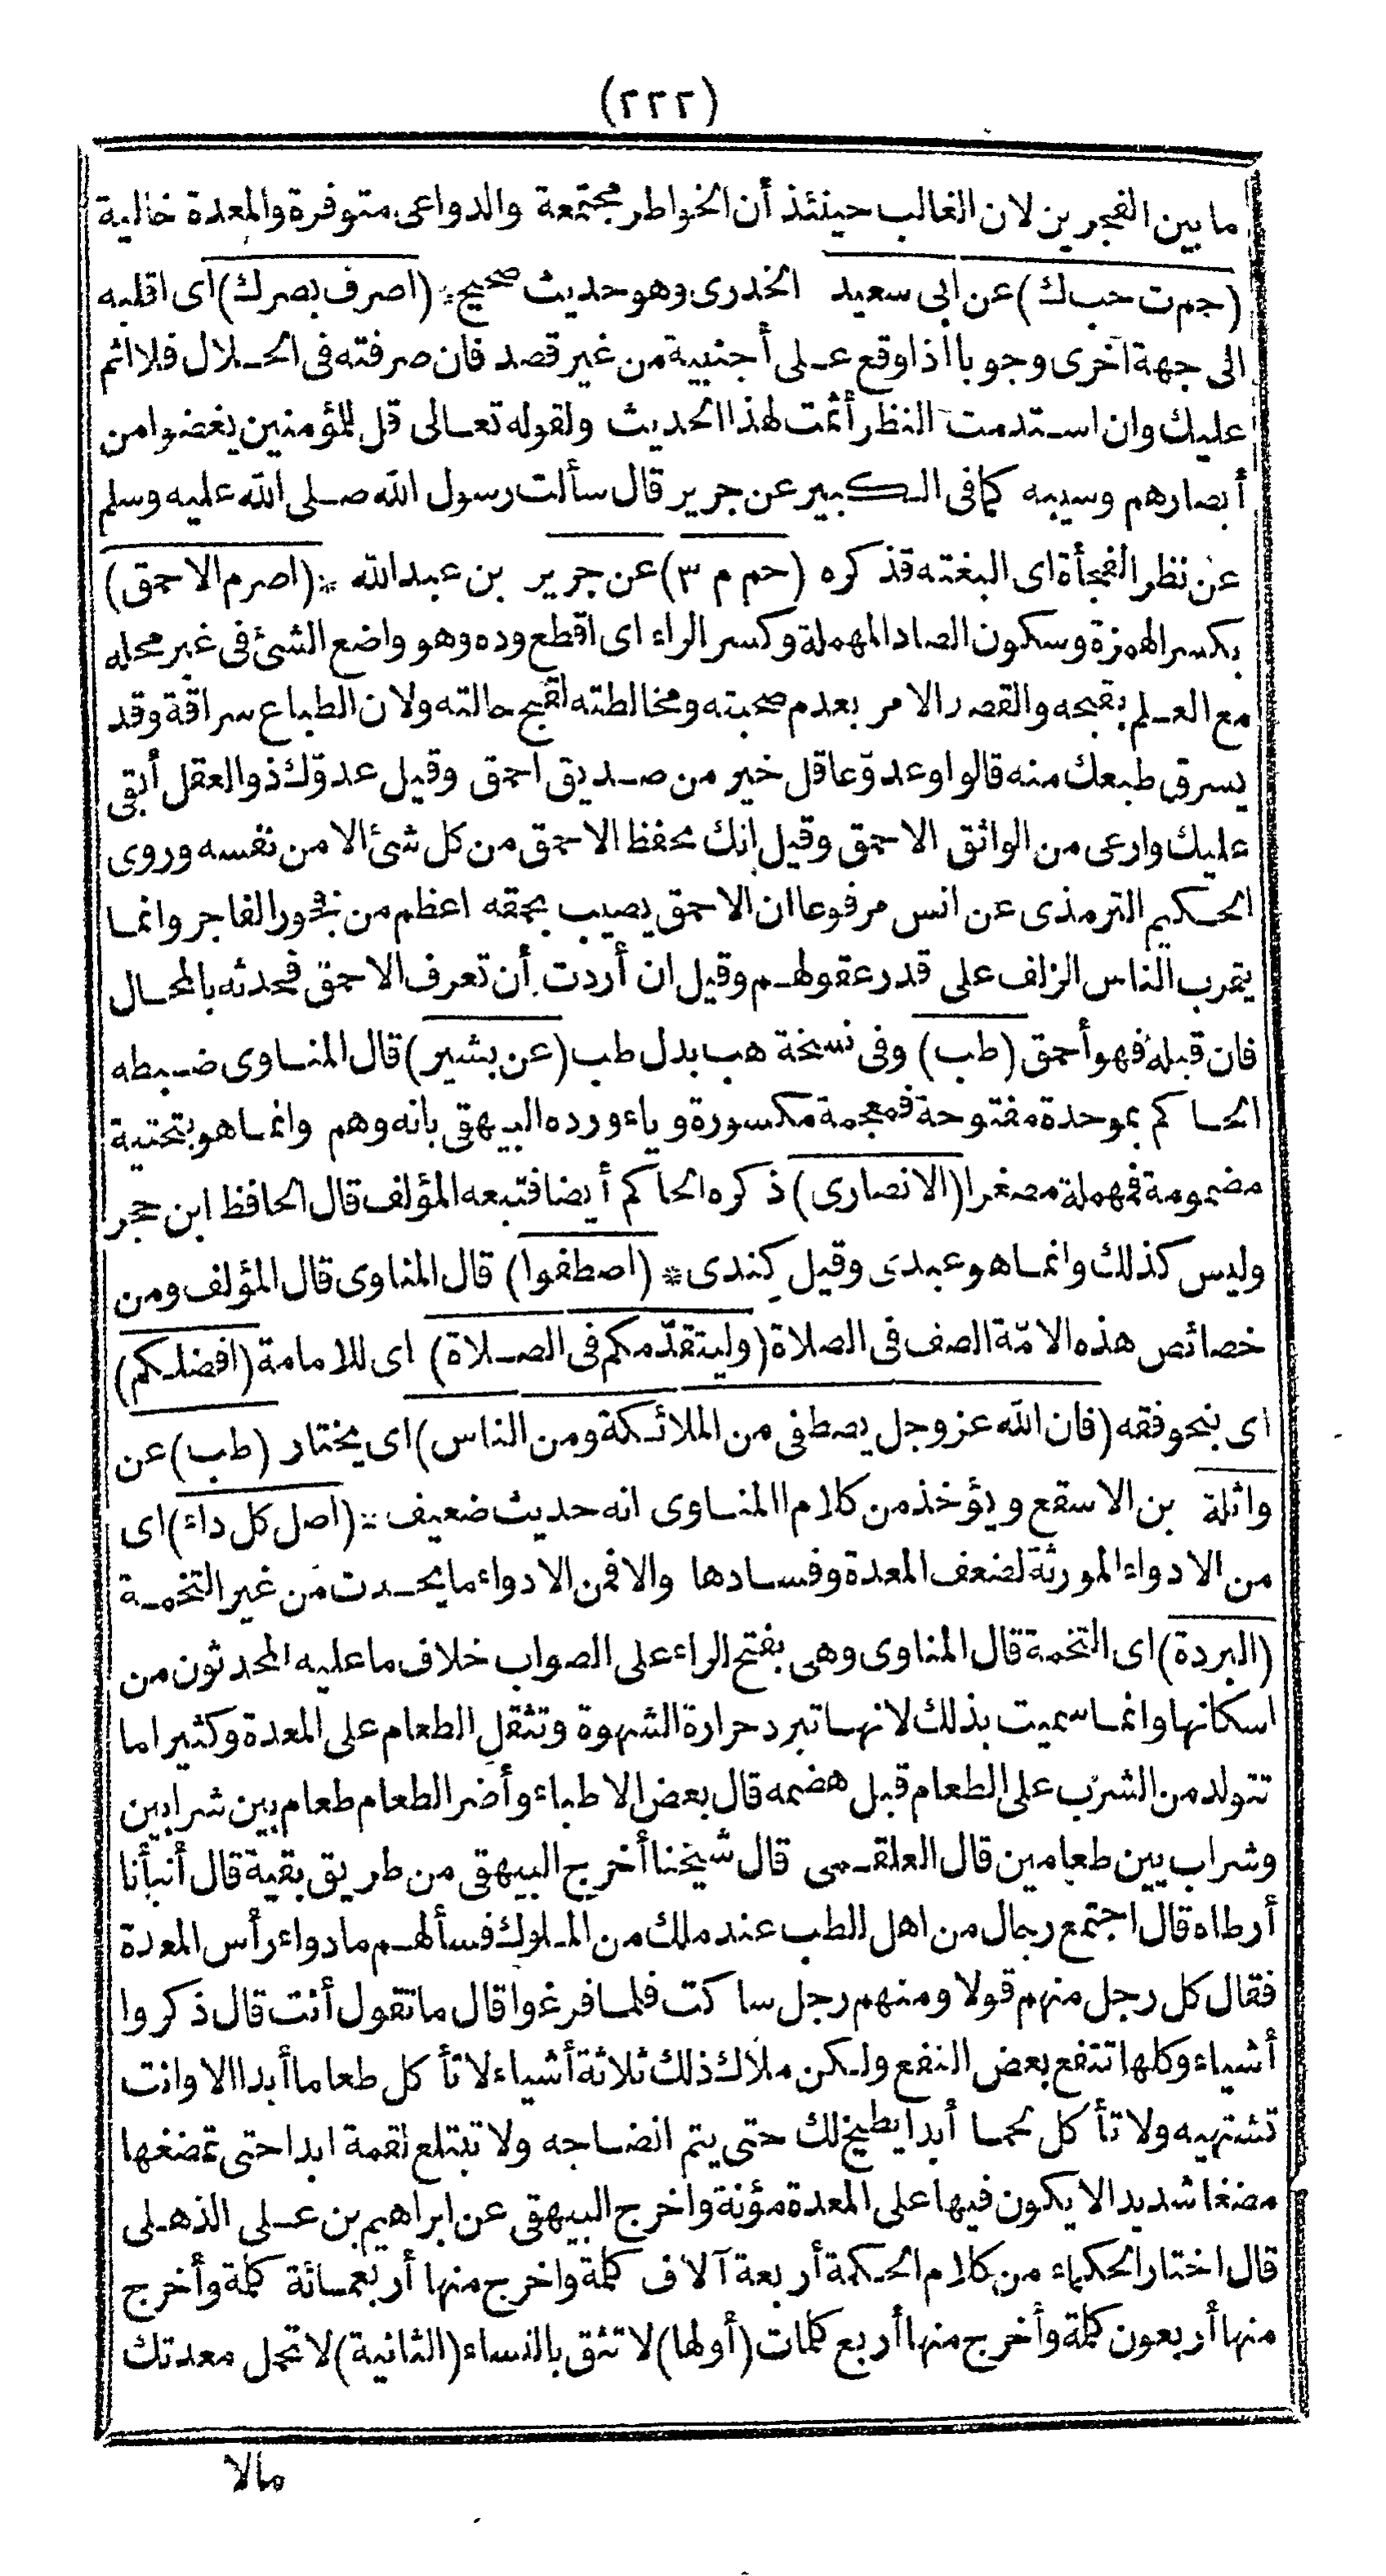 (٢٣٢)
ما بين الفجرين لان الغالب حينئذ أن الخواطر مجتمعة والدواعى متوفرة والمعدة خالية
(حم ت حب ك) عن ابى سعيد الخدرى وهو حديث صحيح * (اصرف بصرك) اى اقلبه
الى جهة أخرى وجوبا اذا وقع على أجنبية من غير قصد فان صرفته فى الحلال فلا اثم
عليك وان استدمت النظر أثمت لهذا الحديث ولقوله تعالى قل للمؤمنين يغضوا من
أبصارهم وسببه كما فى الكبير عن جرير قال سألت رسول الله صلى الله عليه وسلم
عن نظر الفجأة اى البغتة فذكره (حم م ٣) عن جرير بن عبد الله * (اصرم الاحمق)
بكسر الهمزة وسكون الصاد المهملة وكسر الراء اى اقطع وده وهو واضع الشئ فى غير محله
مع العلم بقبحه والقصد الامر بعدم صحبته ومخالطته لقبح حالته ولان الطباع سراقة وقد
يسرق طبعك منه قالوا وعدوّ عاقل خير من صديق احمق وقيل عدوّك ذو العقل أبقى
عليك وارعى من الوائق الاحمق وقيل انك تحفظ الاحمق من كل شئ الا من نفسه وروى
الحكيم الترمذى عن انس مرفوعا ان الاحمق يصيب بحمقه اعظم من فجور الفاجر وانما
يقرب الناس الزلف على قدر عقولهم وقيل ان أردت أن تعرف الاحمق فحدثه بالمحال
فان قبله فهو أحمق (طب) وفى نسخة هب بدل طب (عن بشير) قال المناوى ضبطه
الحاكم بموحدة مفتوحة فمعجمة مكسورة وياء ورده البيهقى بانه وهم وانما هو بتحتية
مضمومة فمهملة مصغرا (الانصارى) ذكره الحاكم أيضا فتبعه المؤلف قال الحافظ ابن حجر
وليس كذلك وانما هو عبدى وقيل كندى * (اصطفوا) قال المناوى قال المؤلف ومن
خصائص هذه الامّة الصف فى الصلاة (وليتقدّمكم فى الصلاة) اى للامامة (افضلكم)
اى بنحو فقه (فان الله عز وجل يصطفى من الملائكة ومن الناس) اى يختار (طب) عن
واثلة بن الاسقع ويؤخذ من كلام المناوى انه حديث ضعيف * (اصل كل داء) اى
من الادواء المورثة لضعف المعدة وفسادها والا فمن الادواء ما يحدث من غير التخمة
(البردة) اى التخمة قال المناوى وهى بفتح الراء على الصواب خلاف ما عليه المحدثون من
اسكانها وانما سميت بذلك لانها تبرد حرارة الشهوة وتثقل الطعام على المعدة وكثيرا ما
تتولد من الشرب على الطعام قبل هضمه قال بعض الاطباء وأضر الطعام طعام بين شرابين
وشراب بين طعامين قال العلقمى قال شيخنا أخرج البيهقى من طريق بقية قال أنبأنا
أرطاه قال اجتمع رجال من اهل الطب عند ملك من الملوك فسألهم ما دواء رأس المعدة
فقال كل رجل منهم قولا ومنهم رجل ساكت فلما فرغوا قال ما تقول أنت قال ذكروا
أشياء وكلها تنفع بعض النفع ولكن ملاك ذلك ثلاثة أشياء لا تأكل طعاما أبدا الا وانت
تشتهيه ولا تأكل لحما أبدا يطبخ لك حتى يتم انضاجه ولا تبتلع لقمة ابدا حتى تمضغها
مضغا شديدا لا يكون فيها على المعدة مؤنة واخرج البيهقى عن ابراهيم بن على الذهلى
قال اختار الحكماء من كلام الحكمة أربعة آلاف كلمة واخرج منها أربعمائة كلمة وأخرج
منها أربعون كلمة وأخرج منها أربع كلمات (أولها) لا تثق بالنساء (الثانية) لا تحمل معدتك
مالا